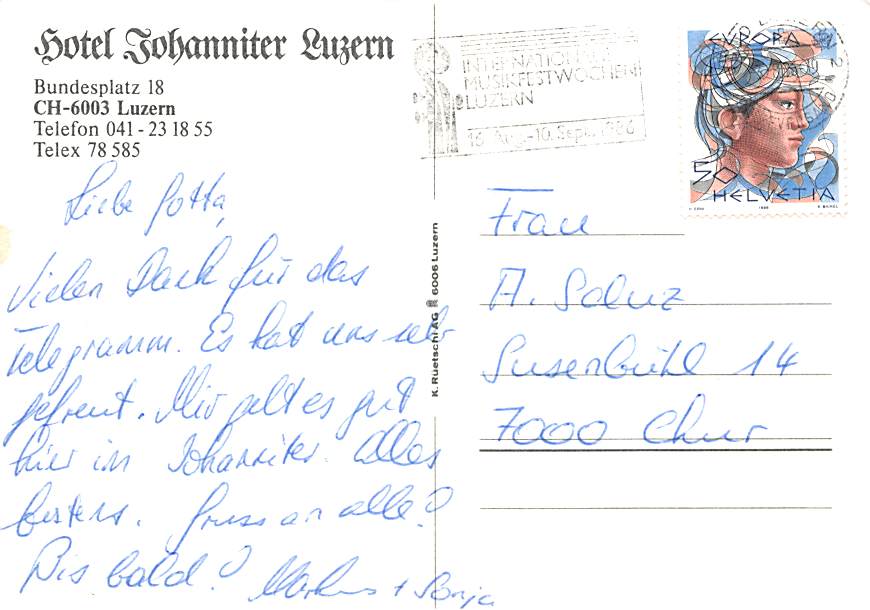 Hotel Johanniter Luzern
Bundesplatz 18
CH-6003 Luzern
Telefon 041 - 23 18 55
Telex 78 585
Liebe Gotta,
Vielen Dank für das
Telegramm. Es hat uns sehr
gefreut. Mir geht es gut
hier im Johanniter. Alles
bestens. Gruss an alle!
Bis bald! Markus + Sonja
K. Rüetschi AG 6006 Luzern
INTERNATIONALE
MUSIKFESTWOCHEN
LUZERN
16. Aug.-10. Sept. 1986
EUROPA
50
HELVETIA
1986
Frau
A. Saluz
Susenbühl 14
7000 Chur